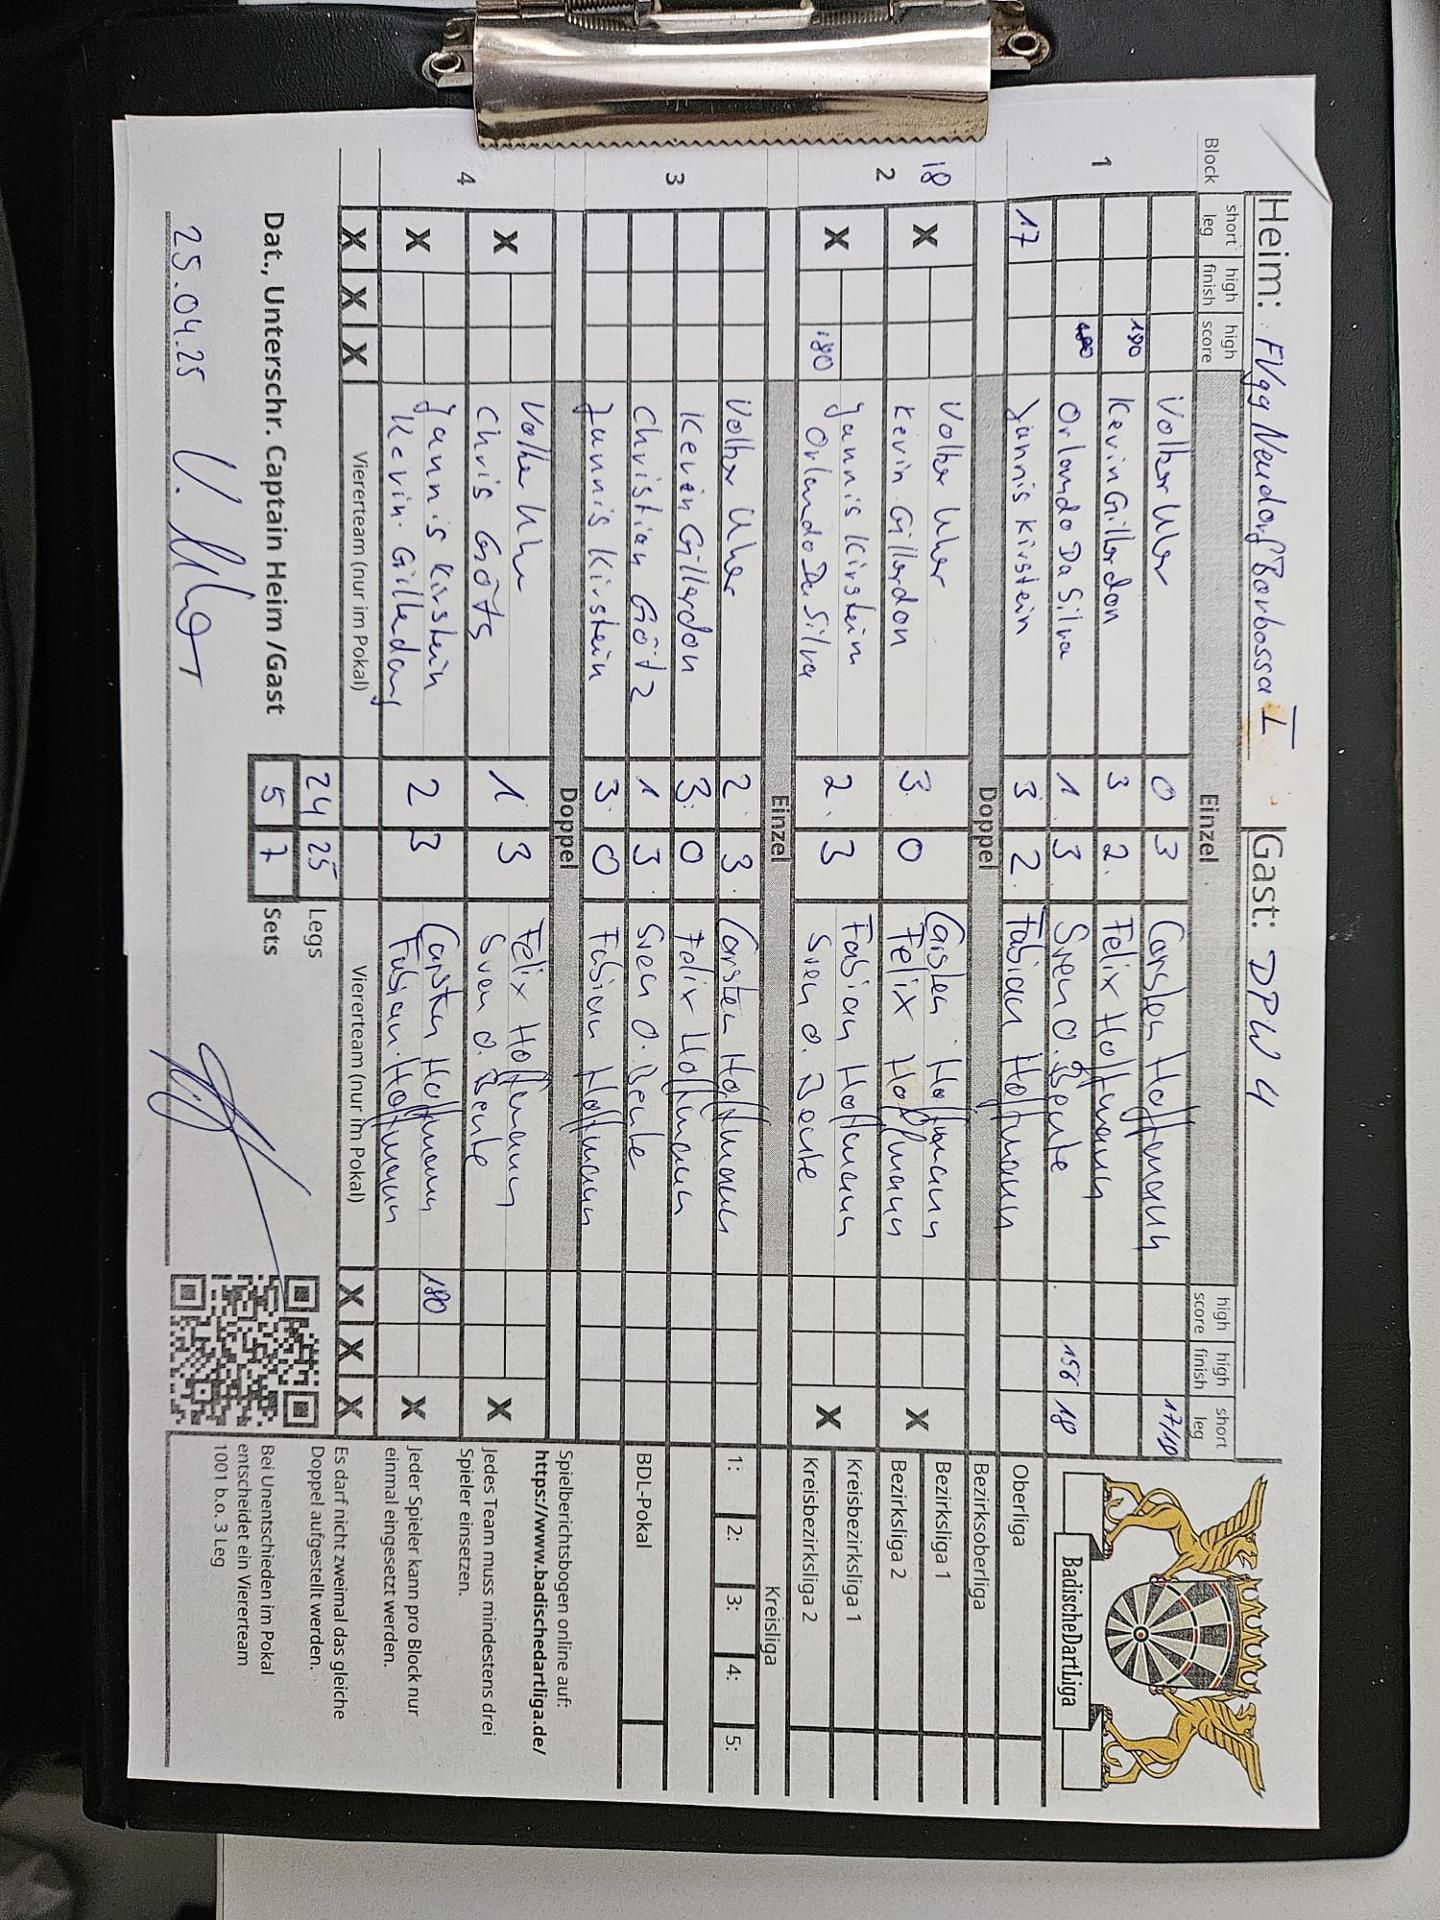 Heim: FVgg Neudorf Barbossa I Gast: DPW 4
Block short leg high finish high score Einzel high score high finish short leg
Volker Uher 0 3 Carsten Hoffmann 17/18
1 180 Kevin Gillardon 3 2 Felix Hoffmann
Orlando Da Silva 1 3 Sven O. Beule 156 18
17 Jannis Kirstein 3 2 Fabian Hoffmann
Doppel
18 Volker Uher Carsten Hoffmann
2 X Kevin Gillardon 3 0 Felix Hoffmann X
X Jannis Kirstein 2 3 Fabian Hoffmann X
180 Orlando Da Silva Sven O. Beule
Einzel
Volker Uher 2 3 Carsten Hoffmann
3 Kevin Gillardon 3 0 Felix Hoffmann
Christian Götz 1 3 Sven O. Beule
Jannis Kirstein 3 0 Fabian Hoffmann
Doppel
X Volker Uher 1 3 Felix Hoffmann X
Chris Götz Sven O. Beule
4 X Jannis Kirstein 2 3 Carsten Hoffmann 180 X
Kevin Gillardon Fabian Hoffmann
X X X Viererteam (nur im Pokal) Viererteam (nur im Pokal) X X X
24 25 Legs
Dat., Unterschr. Captain Heim /Gast 5 7 Sets
25.04.25 V. Uher
BadischeDartLiga
Oberliga
Bezirksoberliga
Bezirksliga 1
Bezirksliga 2
Kreisbezirksliga 1
Kreisbezirksliga 2
Kreisliga
1: 2: 3: 4: 5:
BDL-Pokal
Spielberichtsbogen online auf:
https://www.badischedartliga.de/
Jedes Team muss mindestens drei
Spieler einsetzen.
Jeder Spieler kann pro Block nur
einmal eingesetzt werden.
Es darf nicht zweimal das gleiche
Doppel aufgestellt werden.
Bei Unentschieden im Pokal
entscheidet ein Viererteam
1001 b.o. 3 Leg